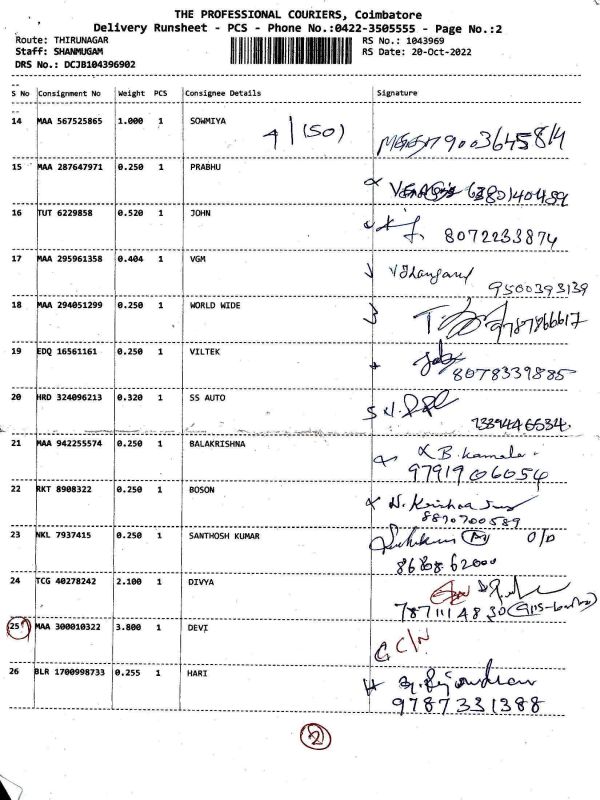 THE PROFESSIONAL COURIERS, Coimbatore
Delivery Runsheet - PCS - Phone No.:0422-3505555 - Page No.:2
Route: THIRUNAGAR RS No.: 1043969
Staff: SHANMUGAM RS Date: 20-Oct-2022
DRS No.: DCJB104396902
S No Consignment No Weight PCS Consignee Details Signature
14 MAA 567525865 1.000 1 SOWMIYA 4/(50) 9003645814
15 MAA 287647971 0.250 1 PRABHU
16 TUT 6229858 0.520 1 JOHN
8072233874
17 MAA 295961358 0.404 1 VGM
9500393139
18 MAA 294051299 0.250 1 WORLD WIDE
9787866617
19 EDQ 16561161 0.250 1 VILTEK
8078339885
20 HRD 324096213 0.320 1 SS AUTO
21 MAA 942255574 0.250 1 BALAKRISHNA B. Kamala
9791906054
22 RKT 8908322 0.250 1 BOSON
8870700589
23 NKL 7937415 0.250 1 SANTHOSH KUMAR
24 TCG 40278242 2.100 1 DIVYA
7871114830
25 MAA 300010322 3.800 1 DEVI
C/N
26 BLR 1700998733 0.255 1 HARI
9787331388
2